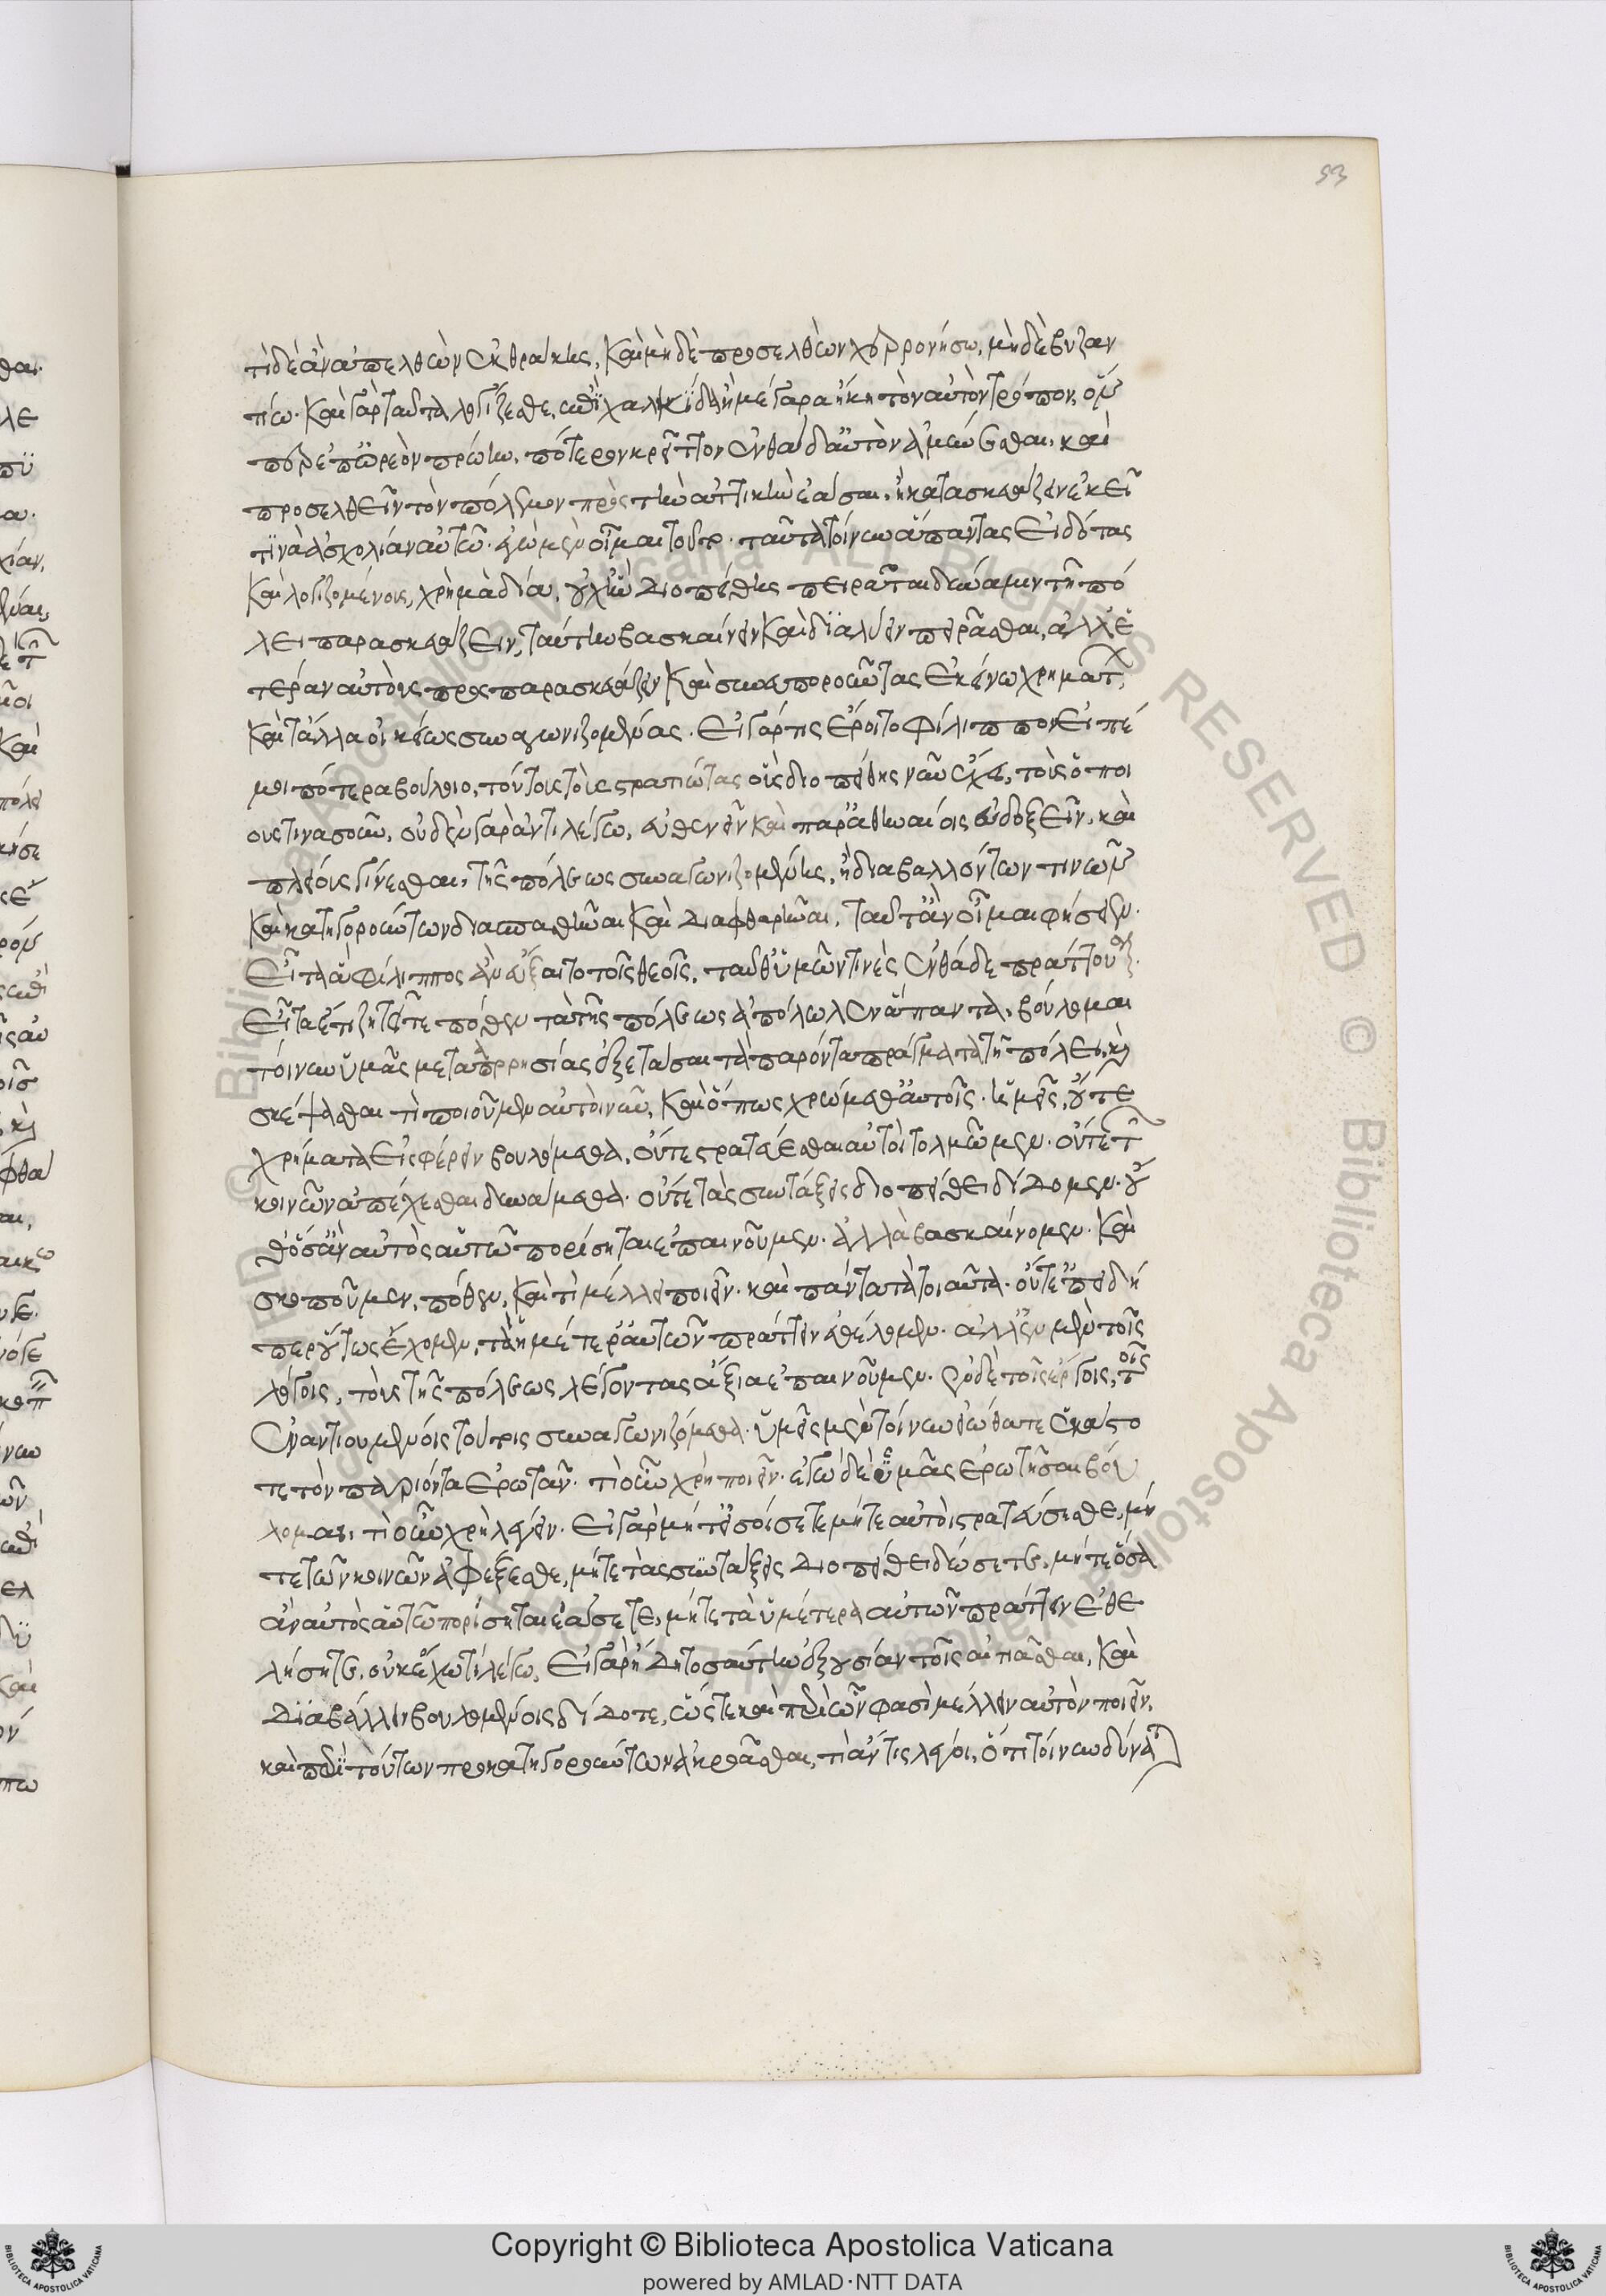 53
τί δὲ ἂν ἀπελθὼν ἐκ θράκης, καὶ μὴ δὲ προσελθὼν χερρονήσω, μὴ δὲ βυζαν
τίω. καὶ γὰρ ταῦτα λογίζεσθε, ἐπὶ χαλκίδα ἢ μέγαρα ἥκη τὸν αὐτὸν τρόπον, ὅν
περ ἐπ' ὠρεὸν πρώην, πότερον κρεῖττον ἐνθάδ' αὐτὸν ἀμύνεσθαι, καὶ
προσελθεῖν τὸν πόλεμον πρὸς τὴν ἀττικὴν ἐᾶσαι, ἢ κατασκευάζειν ἐκεῖ
τινὰ ἀσχολίαν αὐτῶ. ἐγὼ μὲν οἶμαι τοῦτο. ταῦτα τοίνυν ἅπαντας εἰδότας
καὶ λογιζομένους, χρὴ μὰ δία, οὐχ ἣν διοπείθης πειρᾶται δύναμιν τῆ πό
λει παρασκευάζειν, ταύτην βασκαίνειν καὶ διαλύειν πειρᾶσθαι, ἀλλ' ἑ
τέραν αὐτοὺς προσπαρασκευάζειν καὶ συνευποροῦντας ἐκείνω χρημάτ
καὶ τἄλλα οἰκείως συναγωνιζομένους. εἰ γάρ τις ἔροιτο φίλιππον εἰπέ
μοι πότερα βούλοιο, τούτους τοὺς στρατιώτας οὓς διοπείθης νῦν ἔχει, τοὺς ὁποι
ουστινασοῦν, οὐδὲν γὰρ ἀντιλέγω, εὐθενεῖν καὶ παρ' ἀθηναίοις εὐδοξεῖν, καὶ
πλείους γίνεσθαι, τῆς πόλεως συναγωνιζομένης, ἢ διαβαλλόντων τινῶν
καὶ κατηγορούντων διασπασθῆναι καὶ διαφθαρῆναι, ταῦτ' ἂν οἶμαι φήσειεν.
εἶτα ἃ φίλιππος ἂν εὔξαιτο τοῖς θεοῖς, ταῦθ' ὑμῶν τινὲς ἐνθάδε πράττουσιν.
εἶτα ἔτι ζητεῖτε πόθεν τὰ τῆς πόλεως ἀπόλωλεν ἅπαντα, βούλομαι
τοίνυν ὑμᾶς μετὰ παρρησίας ἐξετάσαι τὰ παρόντα πράγματα τῆ πόλει, καὶ
σκέψασθαι τί ποιοῦμεν αὐτοὶ νῦν, καὶ ὅπως χρώμεθ' αὐτοῖς. ἡμεῖς, οὔτε
χρήματα εἰσφέρειν βουλόμεθα, οὔτε στρατεύεσθαι αὐτοὶ τολμῶμεν. οὔτε τ
κοινῶν ἀπέχεσθαι δυνάμεθα. οὔτε τὰς συντάξεις διοπείθει δίδομεν. οὔ
θ' ὅσ' ἂν αὐτὸς αὑτῶ πορίσηται ἐπαινοῦμεν. ἀλλὰ βασκαίνομεν. καὶ
σκοποῦμεν, πόθεν, καὶ τί μέλλει ποιεῖν. καὶ πάντα τὰ τοιαῦτα. οὔτε ἐπειδή
περ οὕτως ἔχομεν, τὰ ἡμέτερ' αὐτῶν πράττειν ἐθέλομεν. ἀλλ' ἐν μὲν τοῖς
λόγοις, τοὺς τῆς πόλεως λέγοντας ἄξια ἐπαινοῦμεν. ἐν δὲ τοῖς ἔργοις, τοῖς
ἐναντιουμένοις τούτοις συναγωνιζόμεθα. ὑμεῖς μὲν τοίνυν εἰώθατε ἑκάστο
τε τὸν παριόντα ἐρωτᾶν. τί οὖν χρὴ ποιεῖν. ἐγὼ δὲ ὑμᾶς ἐρωτῆσαι βού
λομαι, τί οὖν χρὴ λέγειν. εἰ γὰρ μήτε εἰσοίσετε μήτε αὐτοὶ στρατεύσεσθε, μή
τε τῶν κοινῶν ἀφέξεσθε, μήτε τὰς συντάξεις διοπείθει δώσετε, μήτε ὅσα
ἂν αὐτὸς αὑτῶ πορίσηται ἐάσετε, μήτε τὰ ὑμέτερα αὐτῶν πράττειν ἐθε
λήσητε, οὐκ ἔχω τί λέγω, εἰ γὰρ ἤδη τοσαύτην ἐξουσίαν τοῖς αἰτιᾶσθαι, καὶ
διαβάλλειν βουλομένοις δίδοτε, ὥστε καὶ περὶ ὧν φασὶ μέλλειν αὐτὸν ποιεῖν,
καὶ περὶ τούτων προκατηγορούντων ἀκροᾶσθαι, τί ἄν τις λέγοι, ὅ τι τοίνυν δύνατ
Copyright © Biblioteca Apostolica Vaticana
powered by AMLAD·NTT DATA